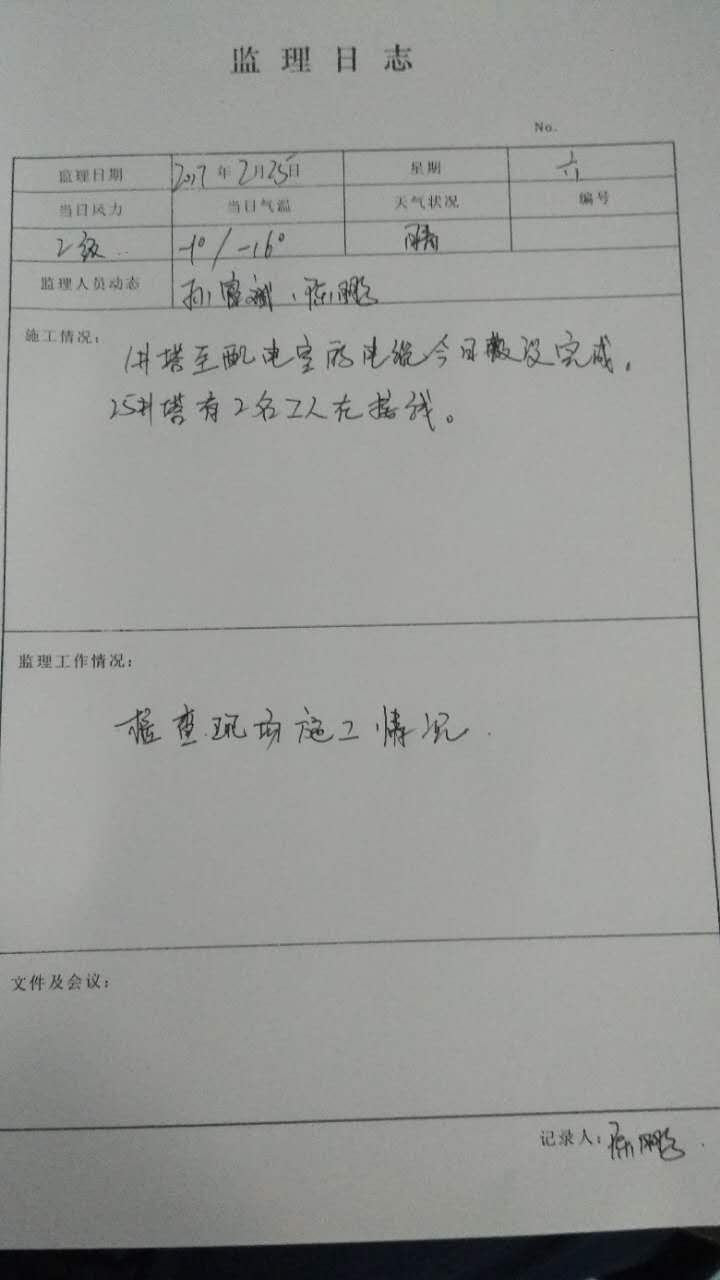 监理日志
No.
监理日期 2017年2月25日 星期 六
当日风力 当日气温 天气状况 编号
2级 -1°/-16° 晴
监理人员动态 孙富斌、陈鹏
施工情况：
1#塔至配电室的电缆今日敷设完成，
25#塔有2名工人在接线。
监理工作情况：
检查现场施工情况
文件及会议：
记录人：陈鹏